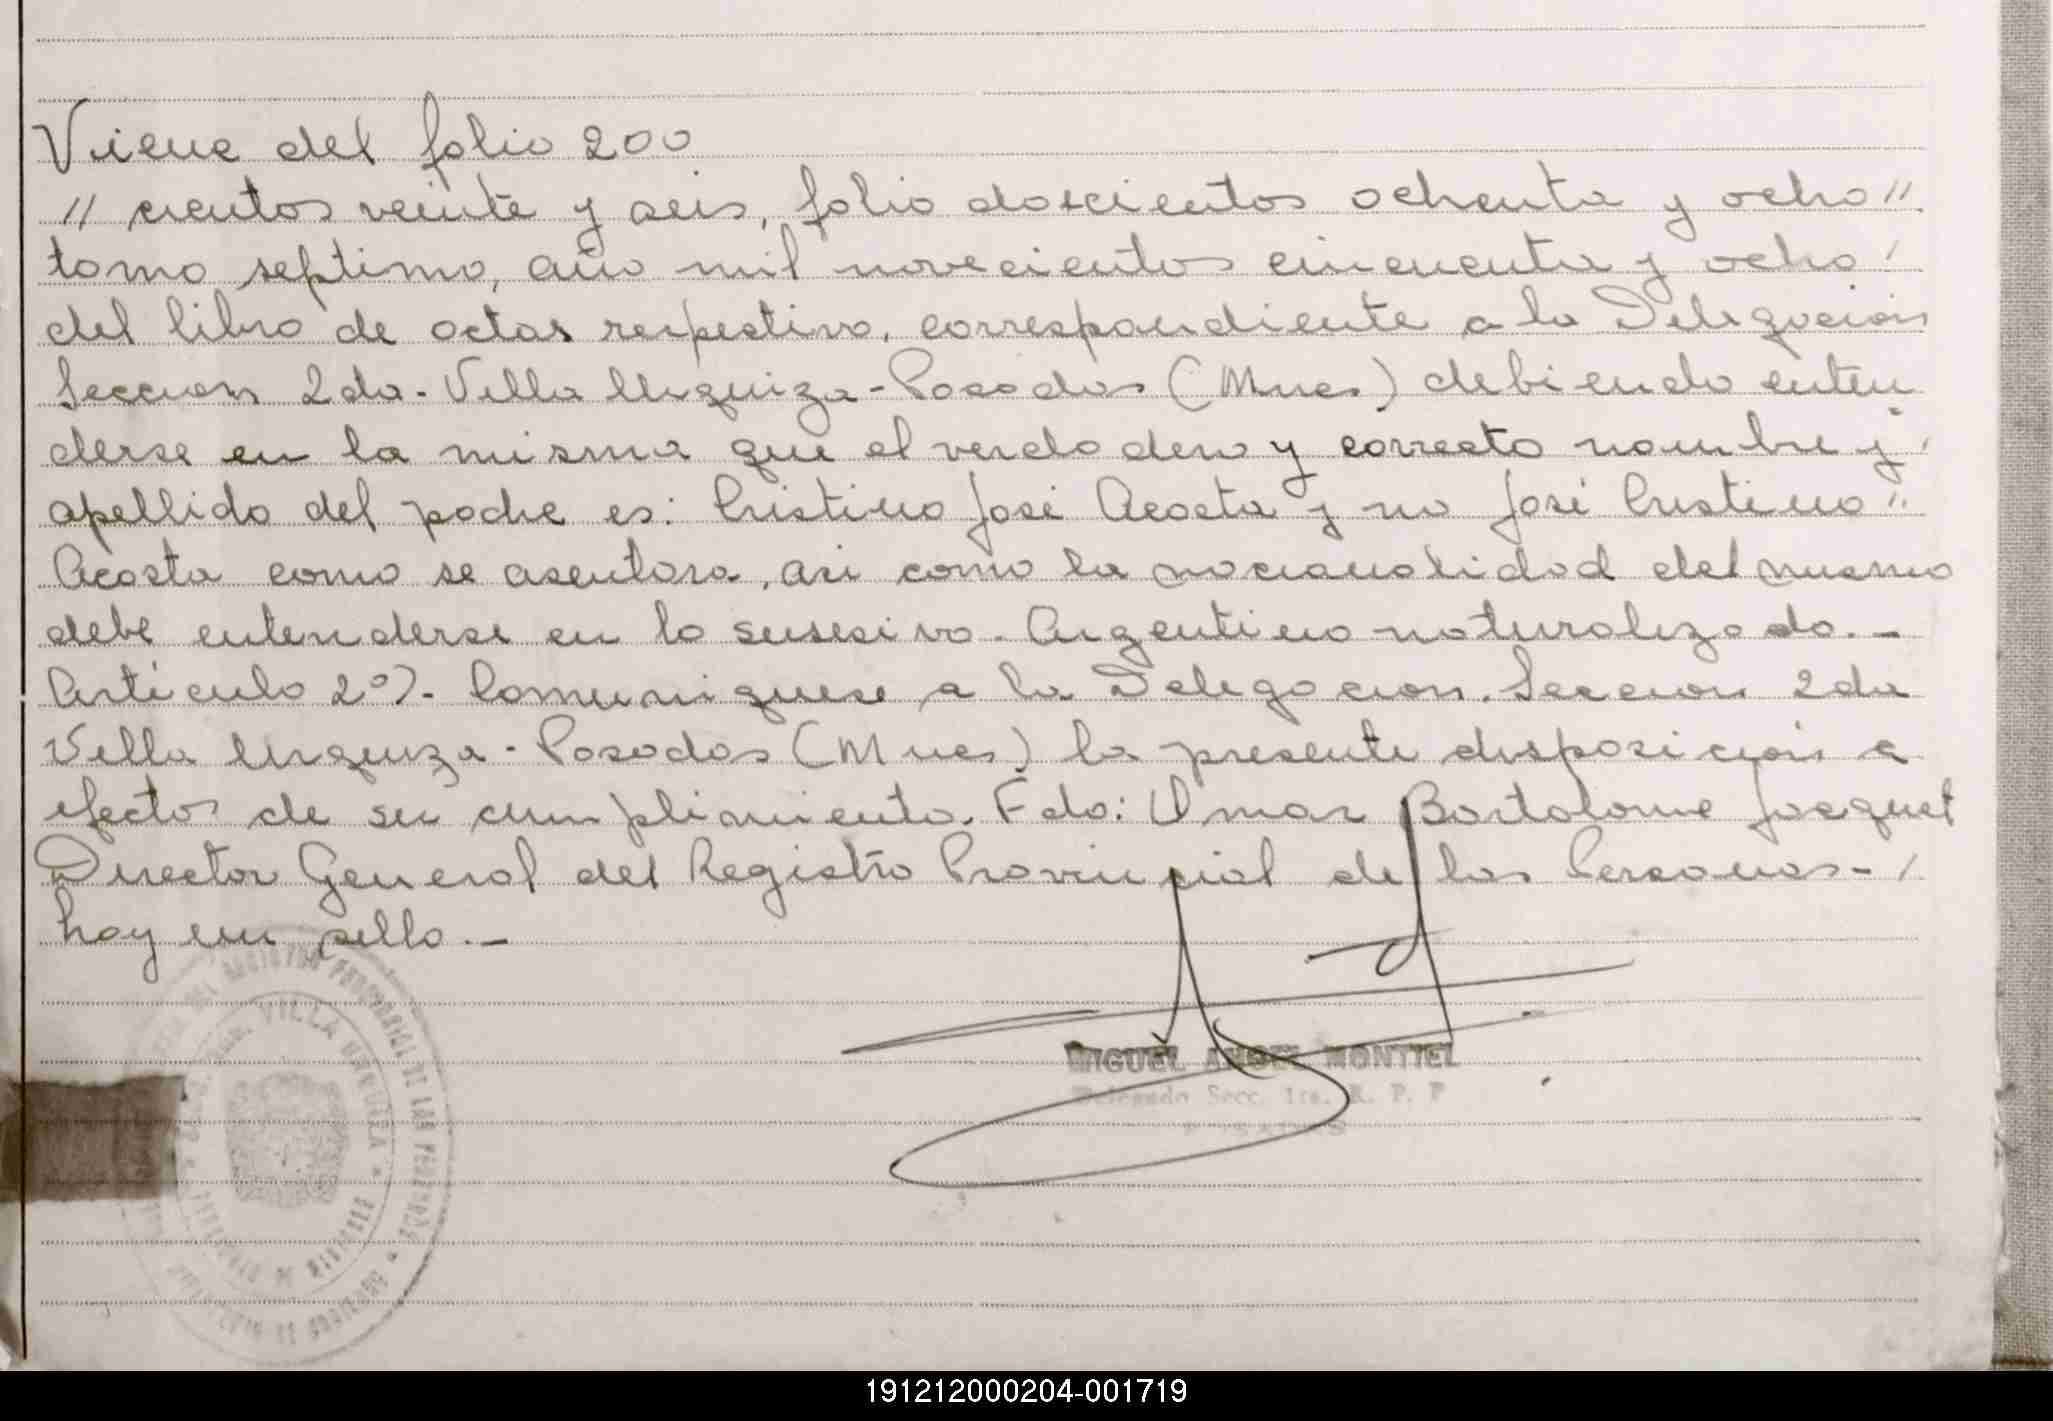 Viene del folio 200
// cientos veinte y seis, folio doscientos ochenta y ocho //
tomo septimo, año mil novecientos cincuenta y ocho /
del libro de actas respectivo, correspondiente a la Delegación
Sección 2da. Villa Urquiza - Posadas (Mnes) debiendo enten
derse en la misma que el verdadero y correcto nombre y /
apellido del padre es: Cristino José Acosta y no José Cristino //
Acosta como se asentara, asi como la nacionalidad del mismo
debe entenderse en lo susesivo. Argentino naturalizado.-
Artículo 2º).- Comuniquese a la Delegacion. Seccion 2da
Villa Urquiza - Posadas (Mnes) la presente disposición a
efectos de su cumplimiento. Fdo: Omar Bartolome Jacquet
Director General del Registro Provincial de las Personas - /
hay un sello.-
MIGUEL ANGEL MONTIEL
Delegado Secc. 1ra. R. P. P
POSADAS
DEL REGISTRO PROVINCIAL DE LAS PERSONAS
VILLA URQUIZA
191212000204-001719